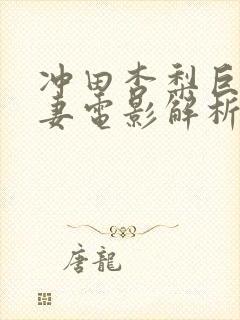 冲田杏梨巨
妻电影解析
唐龍